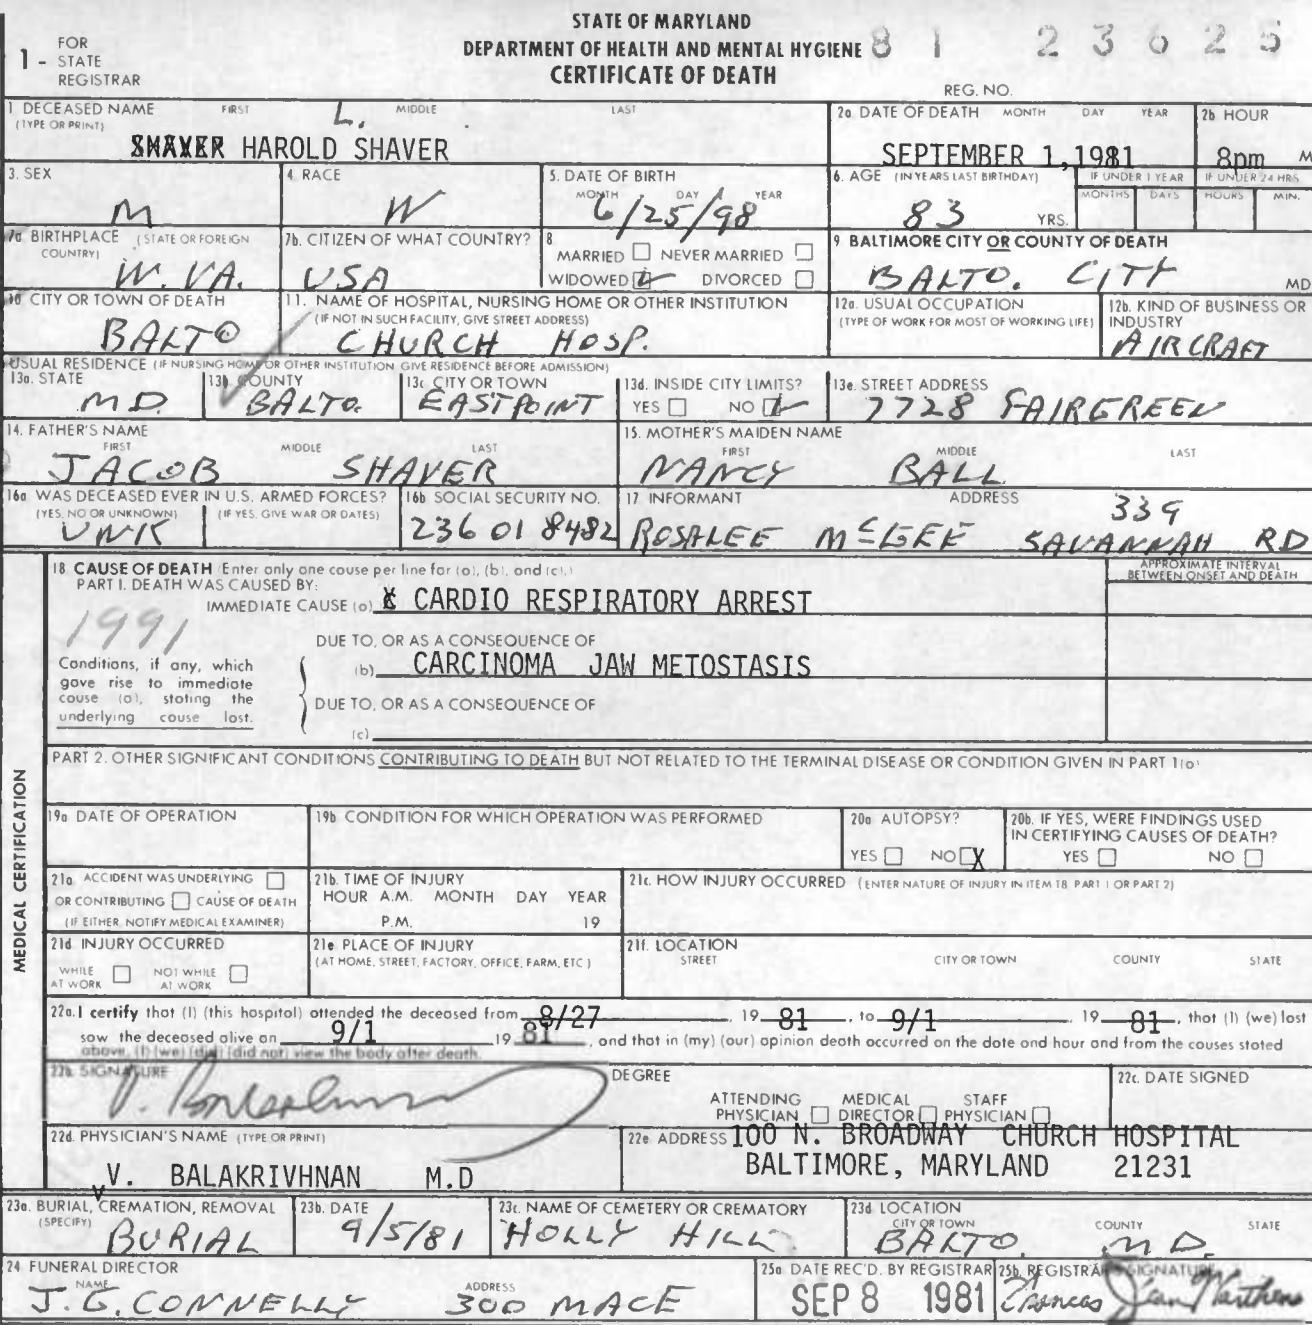 STATE OF MARYLAND
DEPARTMENT OF HEALTH AND MENTAL HYGIENE
CERTIFICATE OF DEATH
81 23625
REG. NO.
1 - FOR STATE REGISTRAR
1 DECEASED NAME (TYPE OR PRINT) FIRST MIDDLE LAST
L.
HAROLD SHAVER
2a DATE OF DEATH MONTH DAY YEAR
SEPTEMBER 1,1981
2b HOUR
8pm M
3. SEX
M
4. RACE
W
5. DATE OF BIRTH MONTH DAY YEAR
6/25/98
6. AGE (IN YEARS LAST BIRTHDAY)
83 YRS.
IF UNDER 1 YEAR MONTHS DAYS
IF UNDER 24 HRS HOURS MIN.
7a BIRTHPLACE (STATE OR FOREIGN COUNTRY)
W. VA.
7b. CITIZEN OF WHAT COUNTRY?
USA
8 MARRIED NEVER MARRIED
WIDOWED DIVORCED
9 BALTIMORE CITY OR COUNTY OF DEATH
BALTO. CITY MD
10 CITY OR TOWN OF DEATH
BALTO
11. NAME OF HOSPITAL, NURSING HOME OR OTHER INSTITUTION
(IF NOT IN SUCH FACILITY, GIVE STREET ADDRESS)
CHURCH HOSP.
12a. USUAL OCCUPATION
(TYPE OF WORK FOR MOST OF WORKING LIFE)
12b. KIND OF BUSINESS OR INDUSTRY
AIRCRAFT
USUAL RESIDENCE (IF NURSING HOME OR OTHER INSTITUTION GIVE RESIDENCE BEFORE ADMISSION)
13a. STATE
MD.
13b COUNTY
BALTO.
13c CITY OR TOWN
EASTPOINT
13d. INSIDE CITY LIMITS?
YES NO
13e. STREET ADDRESS
7728 FAIRGREEN
14. FATHER'S NAME FIRST MIDDLE LAST
JACOB SHAVER
15. MOTHER'S MAIDEN NAME FIRST MIDDLE LAST
NANCY BALL
16a WAS DECEASED EVER IN U.S. ARMED FORCES?
(YES, NO OR UNKNOWN) (IF YES, GIVE WAR OR DATES)
UNK
16b SOCIAL SECURITY NO.
236 01 8482
17 INFORMANT ADDRESS
ROSALEE McGEE 339 SAVANNAH RD
18 CAUSE OF DEATH (Enter only one cause per line for (a), (b), and (c).)
PART I. DEATH WAS CAUSED BY:
APPROXIMATE INTERVAL BETWEEN ONSET AND DEATH
IMMEDIATE CAUSE (a) CARDIO RESPIRATORY ARREST
1991
DUE TO, OR AS A CONSEQUENCE OF
(b) CARCINOMA JAW METOSTASIS
Conditions, if any, which
gave rise to immediate
cause (a), stating the
underlying cause last.
DUE TO, OR AS A CONSEQUENCE OF
(c)
PART 2. OTHER SIGNIFICANT CONDITIONS CONTRIBUTING TO DEATH BUT NOT RELATED TO THE TERMINAL DISEASE OR CONDITION GIVEN IN PART 1(a)
MEDICAL CERTIFICATION
19a DATE OF OPERATION
19b CONDITION FOR WHICH OPERATION WAS PERFORMED
20a AUTOPSY?
YES NO X
20b. IF YES, WERE FINDINGS USED
IN CERTIFYING CAUSES OF DEATH?
YES NO
21a ACCIDENT WAS UNDERLYING
OR CONTRIBUTING CAUSE OF DEATH
(IF EITHER, NOTIFY MEDICAL EXAMINER)
21b. TIME OF INJURY
HOUR A.M. MONTH DAY YEAR
P.M. 19
21c. HOW INJURY OCCURRED (ENTER NATURE OF INJURY IN ITEM 18 PART 1 OR PART 2)
21d INJURY OCCURRED
WHILE AT WORK NOT WHILE AT WORK
21e PLACE OF INJURY
(AT HOME, STREET, FACTORY, OFFICE, FARM, ETC)
21f. LOCATION
STREET CITY OR TOWN COUNTY STATE
22a. I certify that (I) (this hospital) attended the deceased from 8/27, 19 81, to 9/1, 19 81, that (I) (we) last
saw the deceased alive on 9/1 19 81, and that in (my) (our) opinion death occurred on the date and hour and from the causes stated
above, (I) (we) (did) (did not) view the body after death.
22b. SIGNATURE
V.
DEGREE
ATTENDING PHYSICIAN MEDICAL DIRECTOR STAFF PHYSICIAN
22c. DATE SIGNED
22d. PHYSICIAN'S NAME (TYPE OR PRINT)
V. BALAKRIVHNAN M.D
22e ADDRESS 100 N. BROADWAY CHURCH HOSPITAL
BALTIMORE, MARYLAND 21231
23a. BURIAL, CREMATION, REMOVAL (SPECIFY)
BURIAL
23b. DATE
9/5/81
23c. NAME OF CEMETERY OR CREMATORY
HOLLY HILL
23d LOCATION
CITY OR TOWN COUNTY STATE
BALTO. MD.
24 FUNERAL DIRECTOR
NAME ADDRESS
J.G. CONNELLY 300 MACE
25a DATE REC'D. BY REGISTRAR
SEP 8 1981
25b. REGISTRAR'S SIGNATURE
Frances Jean